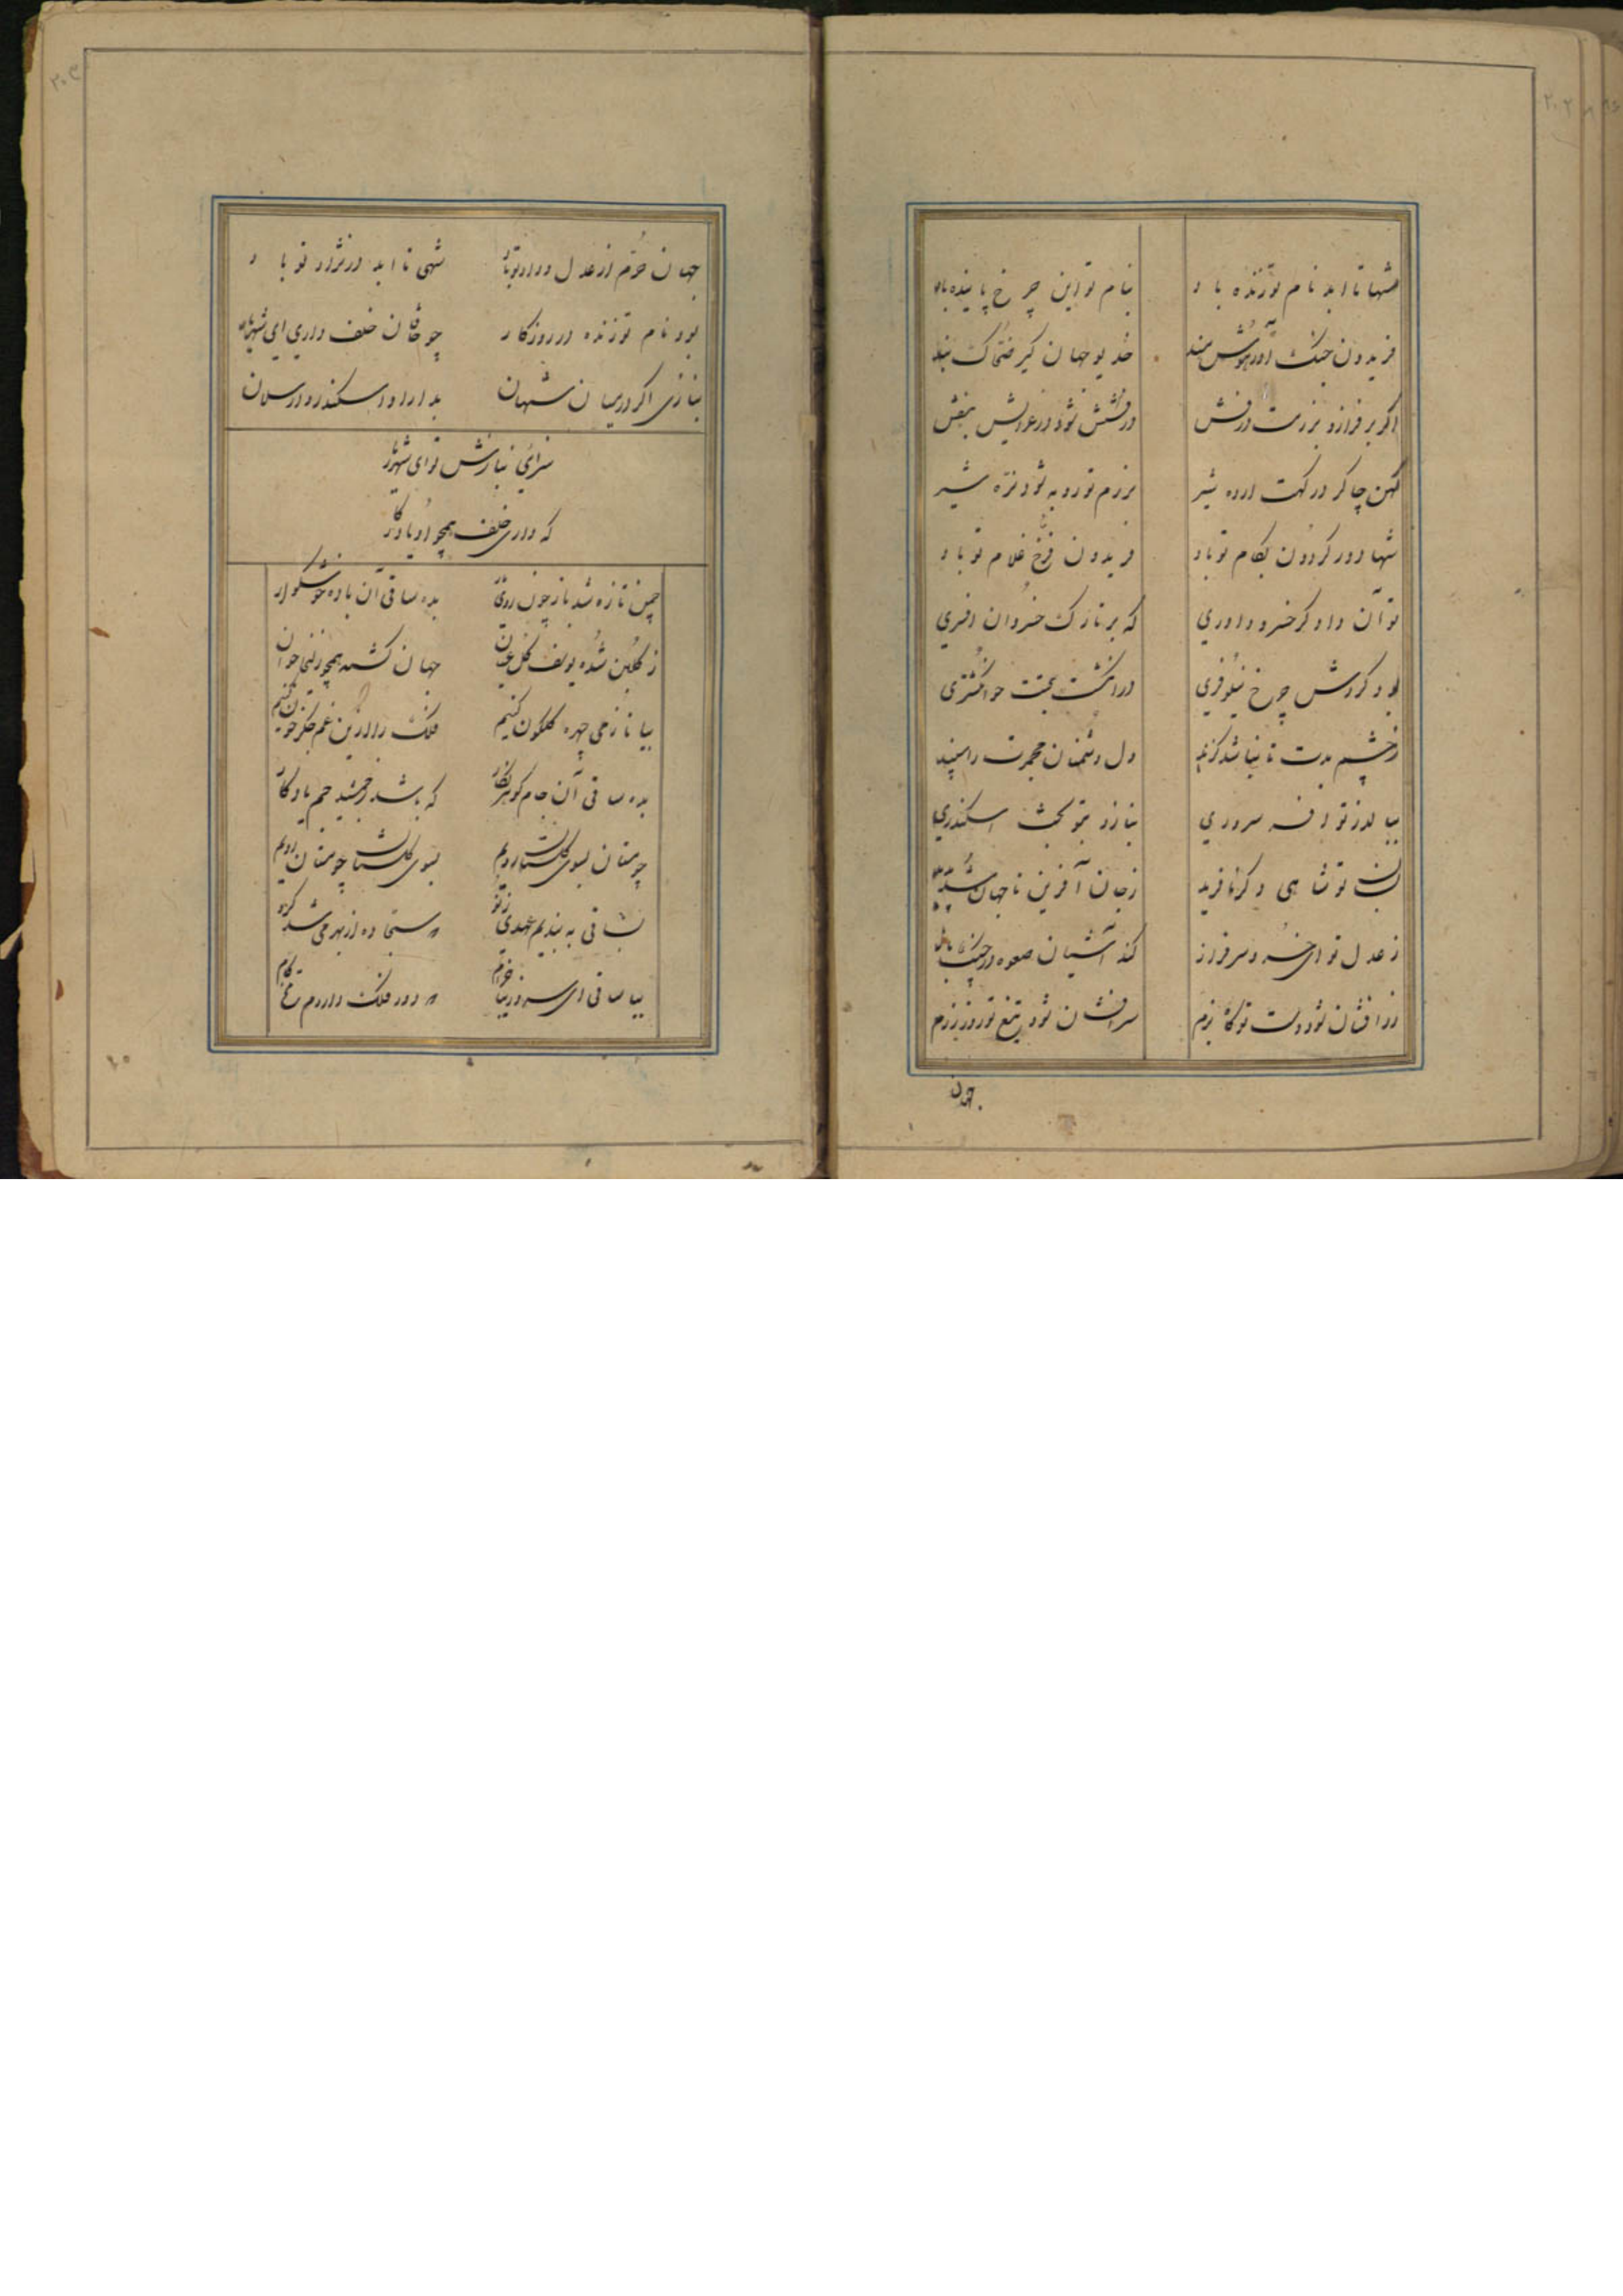 ۲۰۲
شها تا ابد نام تو زنده باد بنام تو این چرخ پاینده باد
فریدون جنگ آور هوشمند خدیو جهان گیر ضحاک بند
اگر بر فرازد بزرمت درفش درفشش شود در عزایش بنفش
کهن چاکر درکهت ارده شیر برزم تو روبه شود نره شیر
شها دور کردون بکام تو باد فریدون فرخ غلام تو باد
تو آن دادگر خسرو داوری که بر تارک خسروان افسری
بود کردش چرخ نیلوفری در انگشت بختت چو انکشتری
ز چشم بدت تا نباشد گزند دل دشمنان مجمرت را سپند
ببالد ز تو افسر سروری بنازد بتو تخت اسکندری
بسان تو شاهی دگر نافرید ز جان آفرین تا جهان شد پدید
ز عدل تو ای خسرو سرفراز کند آشیان صعوه در چنگ باز
زر افشان شود دست تو گاه بزم سر افشان شود تیغ تو روز رزم
جهان
۲۰۳
جهان خرم از عدل و داد تو باد شهی تا ابد در نژاد تو باد
بود نام تو زنده در روزکار چو خاقان خلف داری ای شهریار
بنازی اکر در میان شهان بدارا و اسکندر و ارسلان
سزای نیازش توای شهریار
که داری خلف همچو او یادکار
چمن تازه شد باز چون روی یار بده ساقی آن باده خوشکوار
ز کلبن شده یوسف کل عیان جهان کشته همچو زلیخا جوان
بیا تا ز می چهره کلکون کنیم فلک را ازین غم جکر خون کنیم
بده ساقی آن جام کوهر نکار که باشد ز جمشید جم یادکار
چو مستان بسوی کلستان رویم بسوی کلستان چو مستان رویم
بساقی به بندیم عهدی ز نو که سجاده از بهر می شد کرو
بیا ساقی ای سرو زیبا خرام که دور فلک داردم تلخ کام